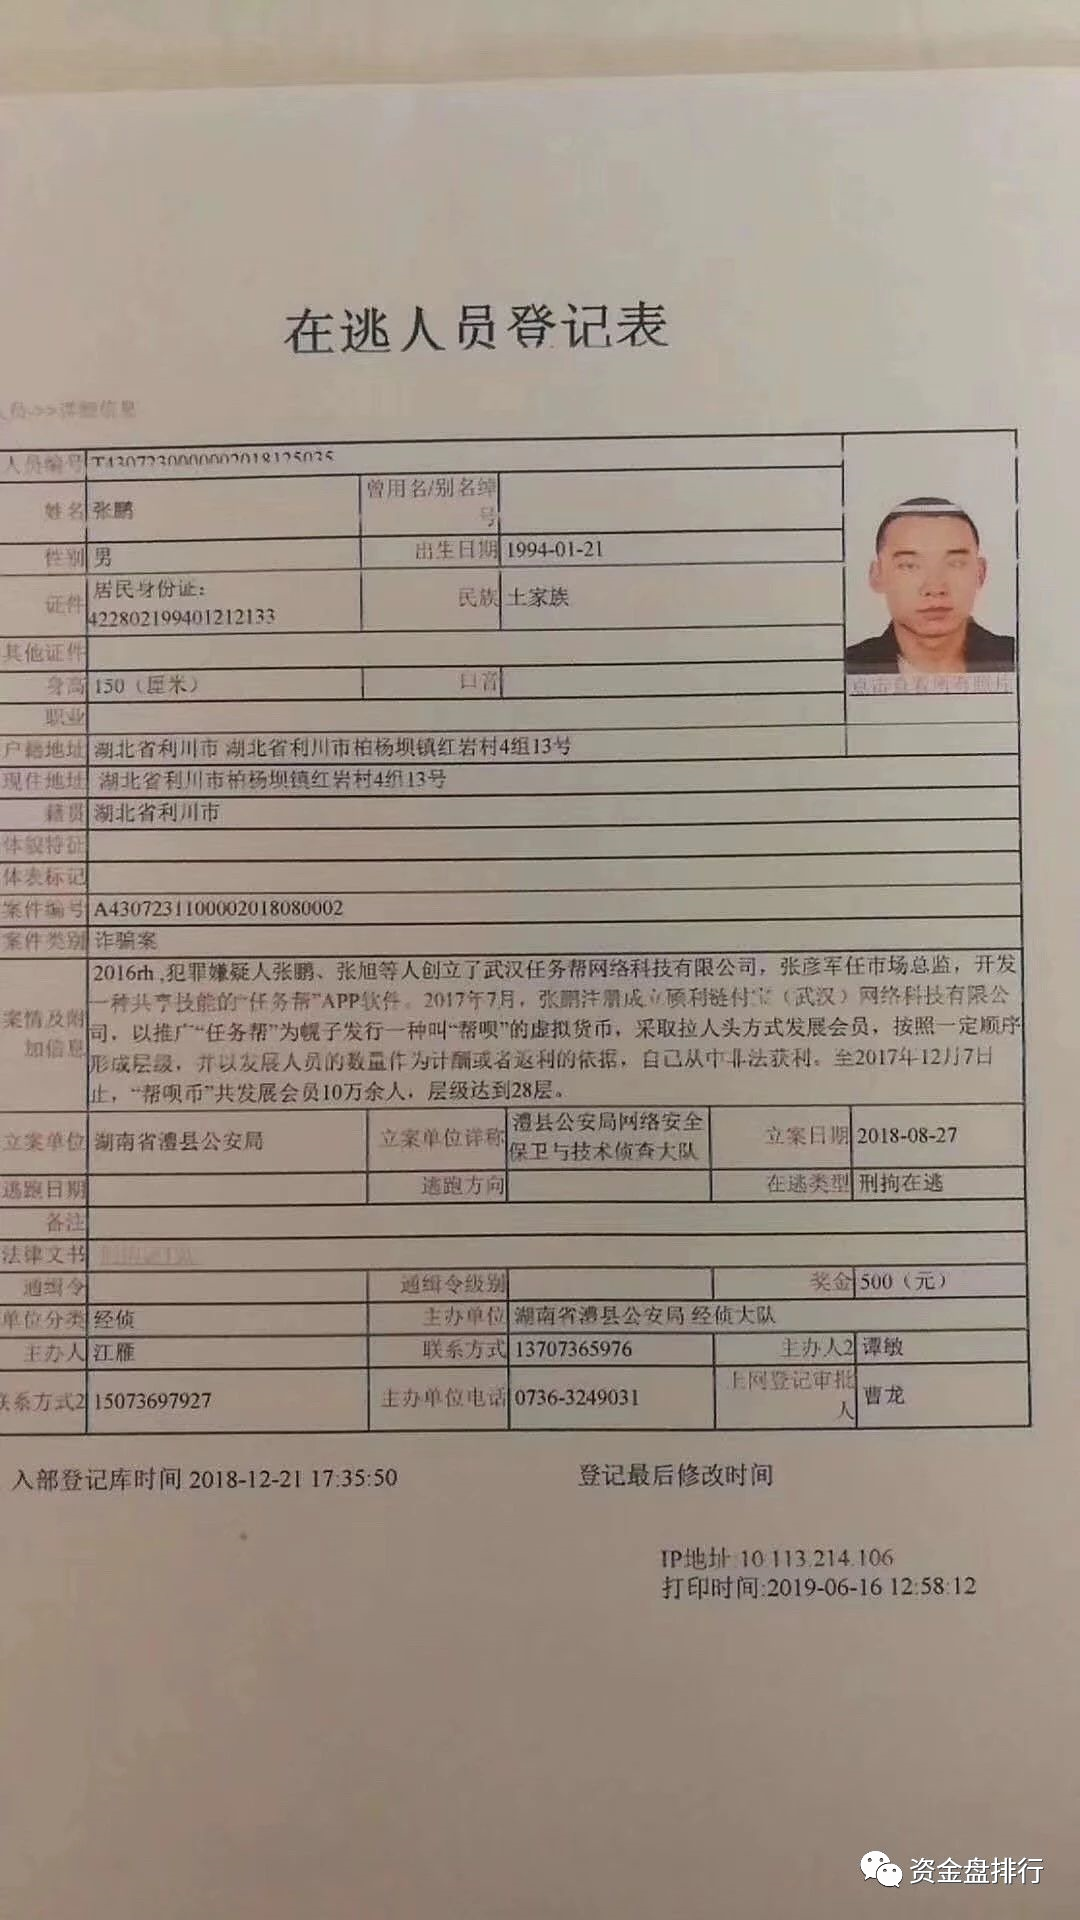 在逃人员登记表
人员->>详细信息
人员编号 T4307230000002018125035
姓名 张鹏 曾用名/别名绰号
性别 男 出生日期 1994-01-21
证件 居民身份证: 422802199401212133 民族 土家族
其他证件
身高 150（厘米） 口音
点击查看所有照片
职业
户籍地址 湖北省利川市 湖北省利川市柏杨坝镇红岩村4组13号
现住地址 湖北省利川市柏杨坝镇红岩村4组13号
籍贯 湖北省利川市
体貌特征
体表标记
案件编号 A4307231100002018080002
案件类别 诈骗案
案情及附加信息
2016rh ,犯罪嫌疑人张鹏、张旭等人创立了武汉任务帮网络科技有限公司，张彦军任市场总监，开发
一种共享技能的“任务帮”APP软件。2017年7月，张鹏注册成立硕利链付宝（武汉）网络科技有限公
司，以推广“任务帮”为幌子发行一种叫“帮呗”的虚拟货币，采取拉人头方式发展会员，按照一定顺序
形成层级，并以发展人员的数量作为计酬或者返利的依据，自己从中非法获利。至2017年12月7日
止，“帮呗币”共发展会员10万余人，层级达到28层。
立案单位 湖南省澧县公安局 立案单位详称 澧县公安局网络安全保卫与技术侦查大队 立案日期 2018-08-27
逃跑日期 逃跑方向 在逃类型 刑拘在逃
备注
法律文书
通缉令 通缉令级别 奖金 500（元）
单位分类 经侦 主办单位 湖南省澧县公安局 经侦大队
主办人 江雁 联系方式 13707365976 主办人2 谭敏
联系方式2 15073697927 主办单位电话 0736-3249031 上网登记审批人 曹龙
入部登记库时间 2018-12-21 17:35:50 登记最后修改时间
IP地址:10.113.214.106
打印时间:2019-06-16 12:58:12
资金盘排行